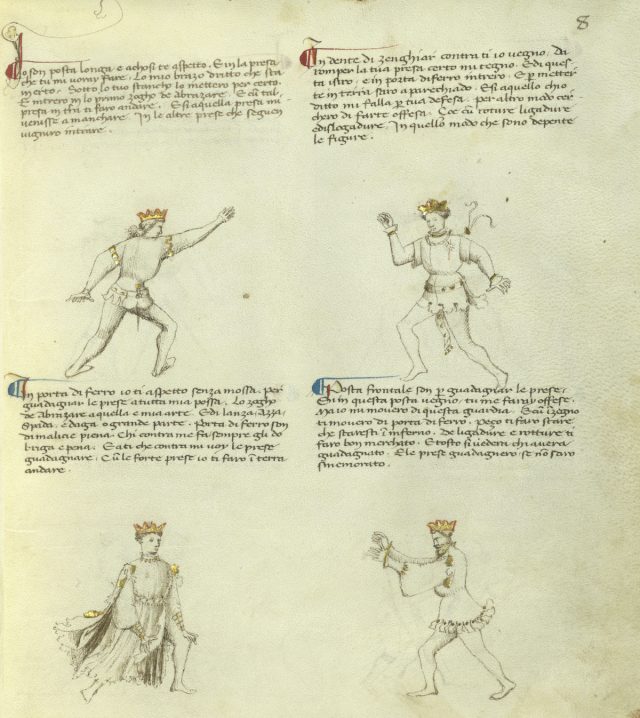 8
Io son posta longa e achosi te aspetto. E in la presa
che tu mi vorai fare. Lo mio brazo dritto che sta
in erto. Sotto lo tuo stancho lo mettero per certo.
E intrero in lo primo zogho de abrazare. E cum tal
presa in terra ti faro andare. E si aquella presa mi
venisse a manchare. In le altre prese che seguen
vigniro intrare.
In dente di zenghiar contra ti io vegno. Da
romper la tua presa certo mi tegno. E di ques
ta isiro. e in porta di ferro intrero. E per metter
te in terra saro aparechiado. E si aquello ch'io
ditto mi falla per tua defesa. per altro modo cer
chero di farte offesa. Zoe cum roture ligadure
e dislogadure. In quello modo che sono depente
le figure.
In porta di ferro io ti aspetto senza mossa. per
guadagnar le prese a tutta mia possa. Lo zogho
de abrazare aquella e mia arte. E di lanza, Azza,
Spada, e daga o grande parte. Porta di ferro son
di malicie piena. Chi contra me fa sempre gli do
briga e pena. E a ti che contra mi voi le prese
guadagnare. Cum le forte prese io ti faro in terra
andare.
Posta frontale son per guadagnar le prese.
Si in questa posta vegno, tu me farai offese.
Ma io mi movero di questa guardia. E cum inzegno
ti movero di porta di ferro. Pezo ti faro stare
che staresti in inferno. de ligadure e rotture ti
faro bon merchato. E tosto si vedera chi avera
guadagnato. E le prese guadagnero se non saro
smemorato.